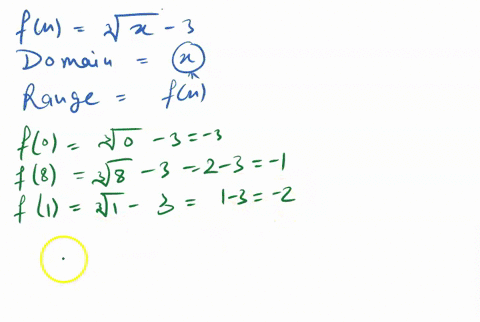 f(x) = ∛x - 3
Domain = x
Range = f(x)
f(0) = ∛0 - 3 = -3
f(8) = ∛8 - 3 = 2-3 = -1
f(1) = ∛1 - 3 = 1-3 = -2